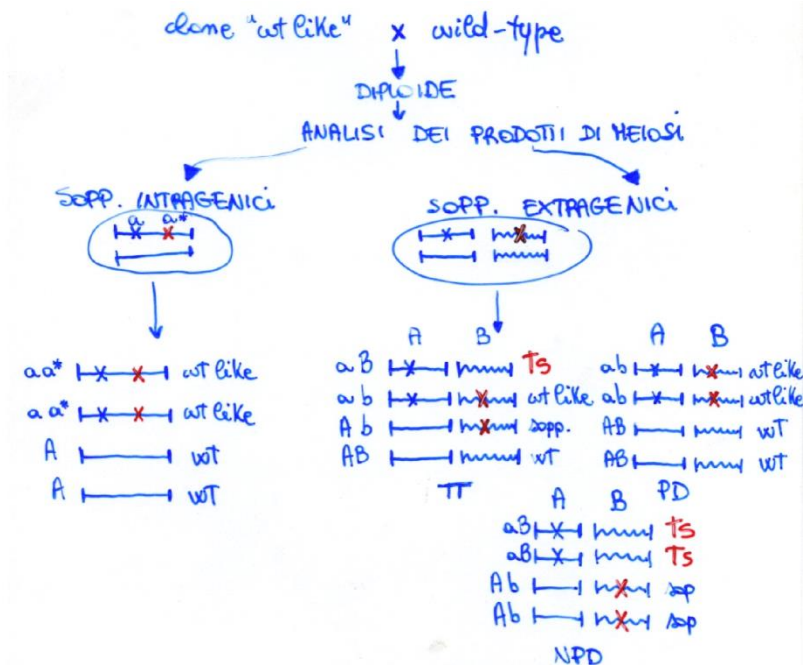 clone "wt like" x wild-type
DIPLOIDE
ANALISI DEI PRODOTTI DI MEIOSI
SOPP. INTRAGENICI
a a*
SOPP. EXTRAGENICI
aa* wt like
aa* wt like
A wt
A wt
A B
aB Ts
ab wt like
Ab sopp.
AB wt
TT
A B
ab wt like
ab wt like
AB wt
AB wt
PD
A B
aB Ts
aB Ts
Ab sop
Ab sop
NPD